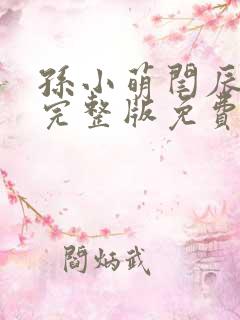 孫小萌閏辰
完整版免費
閻炳武